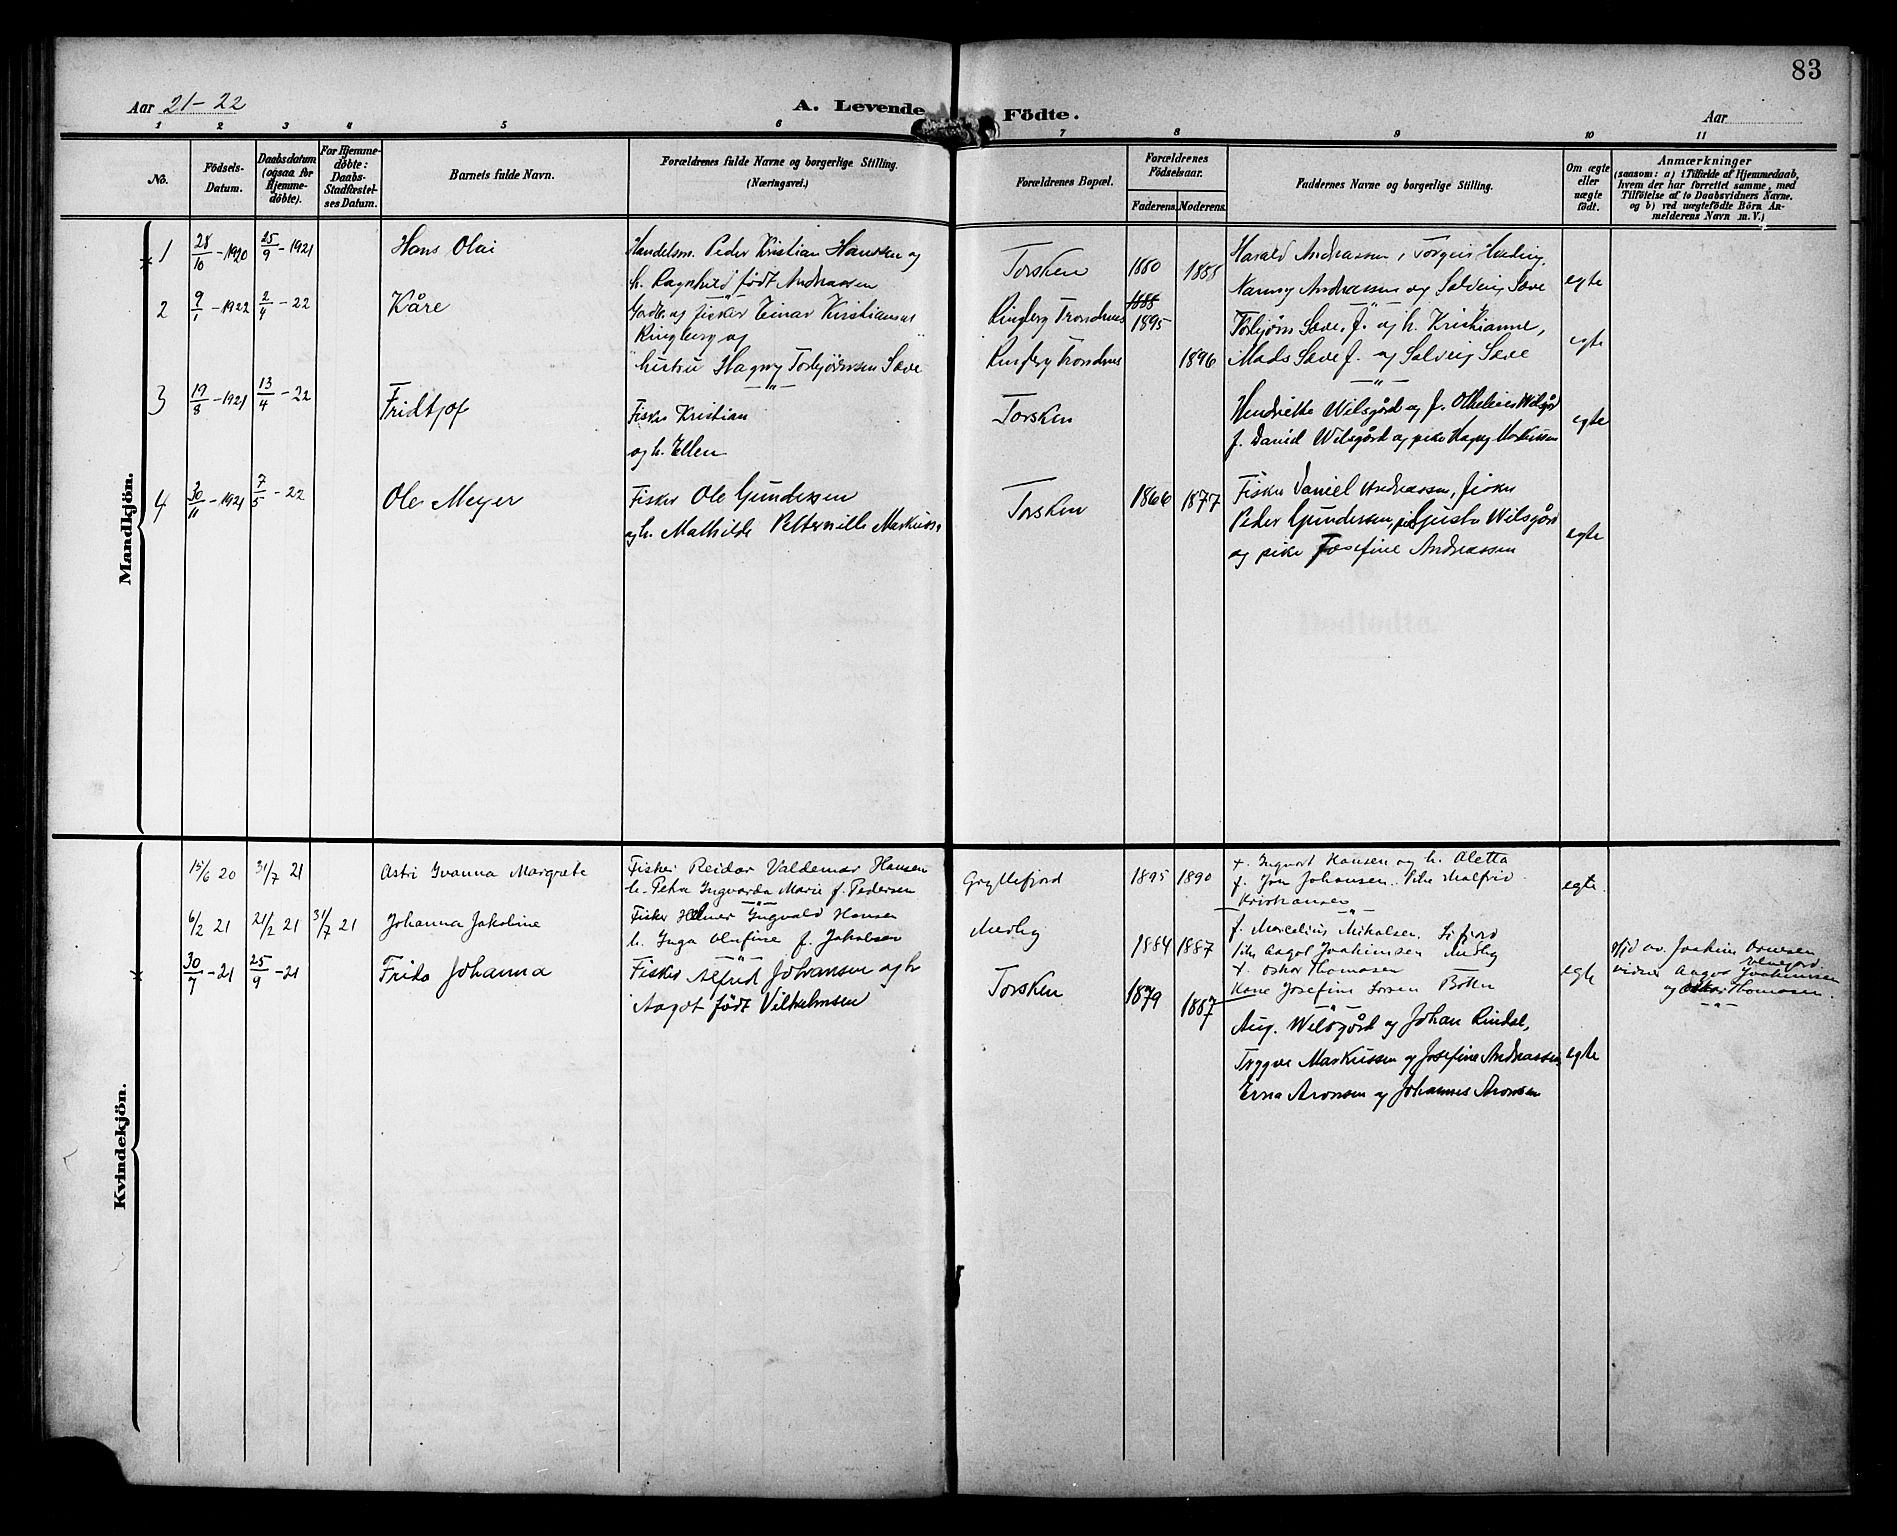 83
Aar 21-22
A. Levende Födte.
Aar
1 2 3 4 5 6 7 8 9 10 11
No.
Födsels-Datum.
Daabsdatum (ogsaa for Hjemme-döbte).
For Hjemme-döbte: Daabs-Stadfæstel-ses Datum.
Barnets fulde Navn.
Forældrenes fulde Navne og borgerlige Stilling.
(Næringsvei.)
Forældrenes Bopæl.
Forældrenes Födselsaar.
Faderens. Moderens.
Faddernes Navne og borgerlige Stilling.
Om ægte eller uægte födt.
Anmærkninger
(saasom: a) i Tilfælde af Hjemmedaab,
hvem der har forrettet samme, med
Tilföielse af to Daabsvidners Navne.
og b) ved uægtefödte Börn An-
melderens Navn m. V.)
Mandkjön.
1 28/10 - 1920 25/9 - 1921 Hans Olai
Handelsm. Peder Kristian Hansen og
h. Ragnhild født Andreassen
Torsken 1880 1885
Harald Andreassen,
Nanny Andreassen og Solveig Sæve
egte
2 9/1 - 1922 2/4 - 22 Kåre
Gårdbr. og fisker Einar Kristiansen
Ringberg og
hustru Hagny Torbjørnsen Sæve
Ringberg Trondenes 1888 1895
Ringberg Trondenes 1896
Torbjørn Sæve, f. og h. Kristianne,
Mads Sæve f. og Solveig Sæve
egte
3 19/8 - 1921 13/4 - 22 Fridtjof
Fisker Kristian
og h. Ellen
Torsken
Hendrikke Wilsgård og f. Wilsgård
f. Daniel Wilsgård og pike Hagny Markussen
egte
4 30/11 - 1921 7/5 - 22 Ole Meyer
Fisker Ole Gundersen
og h. Mathilde Petternille Markuss.
Torsken 1866 1877
Fisker Daniel Andreassen, fisker
Peder Gundersen, Wilsgård
og pike Josefine Andreassen
egte
Kvindekjön.
15/6 20 31/7 21 Astri Ivanna Margrete
Fisker Reidar Valdemar Hansen
h. Petra Ingvarda Marie f. Pedersen
Gryllefjord 1895 1890
f. Ingvart Hansen og h. Aletta
f. Jon Johansen. Pike Malfrid
Kristiansen
egte.
6/2 21 21/2 21 31/7 21 Johanna Jakobine
Fisker Helmer Ingvald Hansen
h. Inga Olufine f. Jakobsen
Medby 1884 1887
f. Marcelius Mikalsen
Pike Aagot Joakimsen Medby
f. Oskar Thomasen
Kone Josefine Botn
egte
Hjd av. Joakim
vidner Aagot Joakimsen
og Oskar Thomasen.
30/7 - 21 25/9 - 21 Frida Johanna
Fisker Alfred Johansen og h.
Aagot født Vilhelmsen
Torsken 1879 1887
Aug. Wilsgård og Johan Rindal,
Trygve Markussen og Josefine Andreassen,
Erna Aronsen og Johannes Aronsen
egte